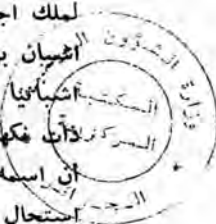 لملك اجـ
اشبان بـ
اشبانيا
ذات فكهـ
أن اسمه
استحال
وزارة الشؤون
المكتبة
المركزية